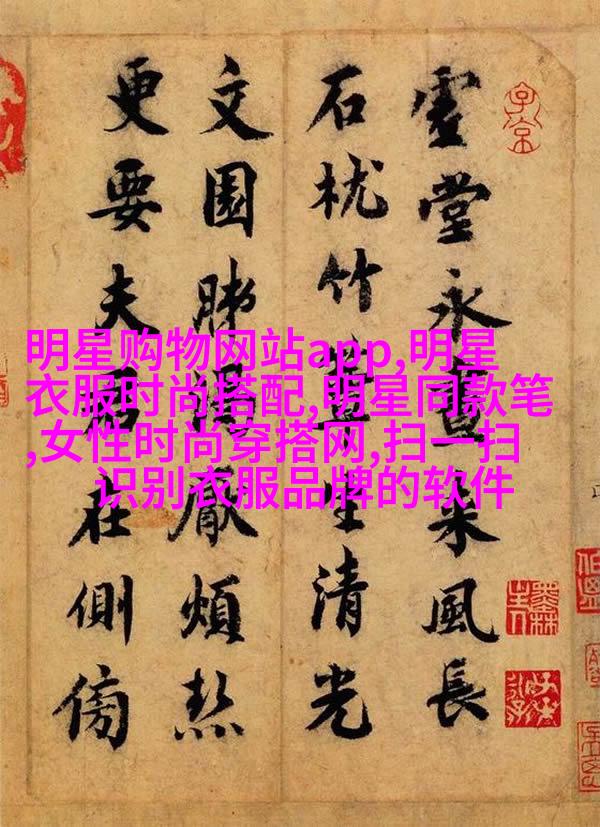 虛堂永來風長
石枕竹生清光
文園肺厭煩熱
更要夫在側傍
明星购物网站app,明星
衣服时尚搭配,明星同款笔
,女性时尚穿搭网,扫一扫
识别衣服品牌的软件